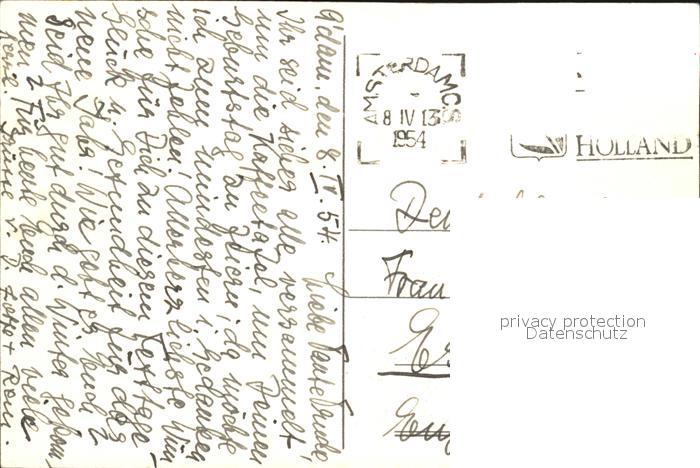 A'dam, den 8. IV. 54. Liebe Tante Trude!
Ihr seid sicher alle versammelt
um die Kaffeetafel, um Deinen
Geburtstag zu feiern, da möchte
ich zum mindesten i. Gedanken
nicht fehlen! Allerherzlichste Wün
sche für Dich zu diesem Festtage
Glück u. Gesundheit für das
neue Jahr! Wie geht es Euch?
Seid Ihr gut durch d. Winter gekom
men? Für heute Euch allen viele
Grüße v. u.
AMSTERDAM C.S
8 IV 13
1954
HOLLAND
Frau
privacy protection
Datenschutz